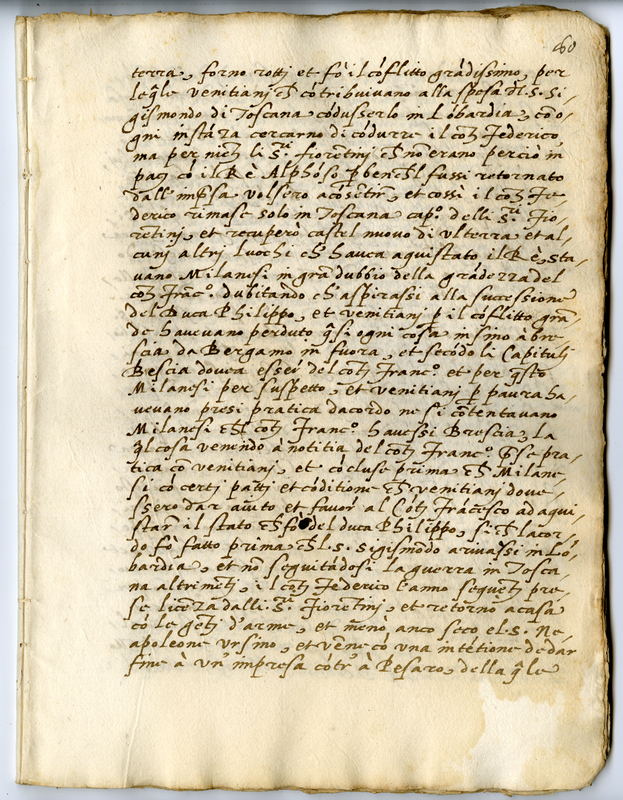 60
terra, forno rotti et fò il cóflitto grádissimo, per
le q̃le venitianj ch̃ cótribuivano alla spesa d̃l .S. Si,
gismondo di Toscana códusserlo in Lóbardia, có o,
gni instáza cercarno di códurre il cot̃j Federico
ma per niet̃j li S.ri fiorentinj ch̃ nõ erano perciò in
pacj có il R è Alphóso p bench̃ l fussi retornato
dall' imp̃sa volsero acósẽtir, et cossì il cot̃j Fe,
derico rimase solo in Toscana cap.º delli S.ri Fio,
rẽtinj, et recuperò castel nuovo di ulterra et al,
cunj altrj luochi ch̃ havea aquistato il R è, sta,
vano Milanesi in grã dubbio della grádezza del
cot̃j Franc.º dubitando ch̃ asperassi alla successione
del Duca Philippo, et venitianj p il cóflitto grã,
de havevano perduto q̃si ogni cosa insino à bre,
scia da Bergamo in fuora, et secódo li Capitulj
Bescia dovea esser del cot̃j Franc.º et per q̃sto
Milanesi per suspetto, et venitianj p paura ha,
vevano presi pratica dacordo ne si cõtentavano
Milanesi ch̃ l cot̃j Franc.º havessi Brescia, la
q̃l cosa venendo à notitia del cot̃j Franc.º p̃se pra,
tica cõ venitianj, et cócluse prima ch̃ Milane,
si có certj pattj et códitione ch̃ venitianj dove,
ssero dar aiuto et favor al Cot̃j Frácesco ad aqui,
star il stato ch̃ fò del duca Philippo, si ch̃ lacor,
do fò fatto prima ch̃ l .S. Sigismódo arivassi in Ló,
bardia, et nõ seguitádosi la guerra in Tosca,
na altrimẽtj, il cot̃j Federico l'anno seguẽtj pre,
se licẽza dalli .S.ri Fiorentinj, et retornò acasa
có le gẽtj d'arme, et menò anco seco el .S. Ne,
apoleone Ursino, et vẽne có una intẽtione de dar
fine à un' impresa cótr' à Pesaro, della q̃le